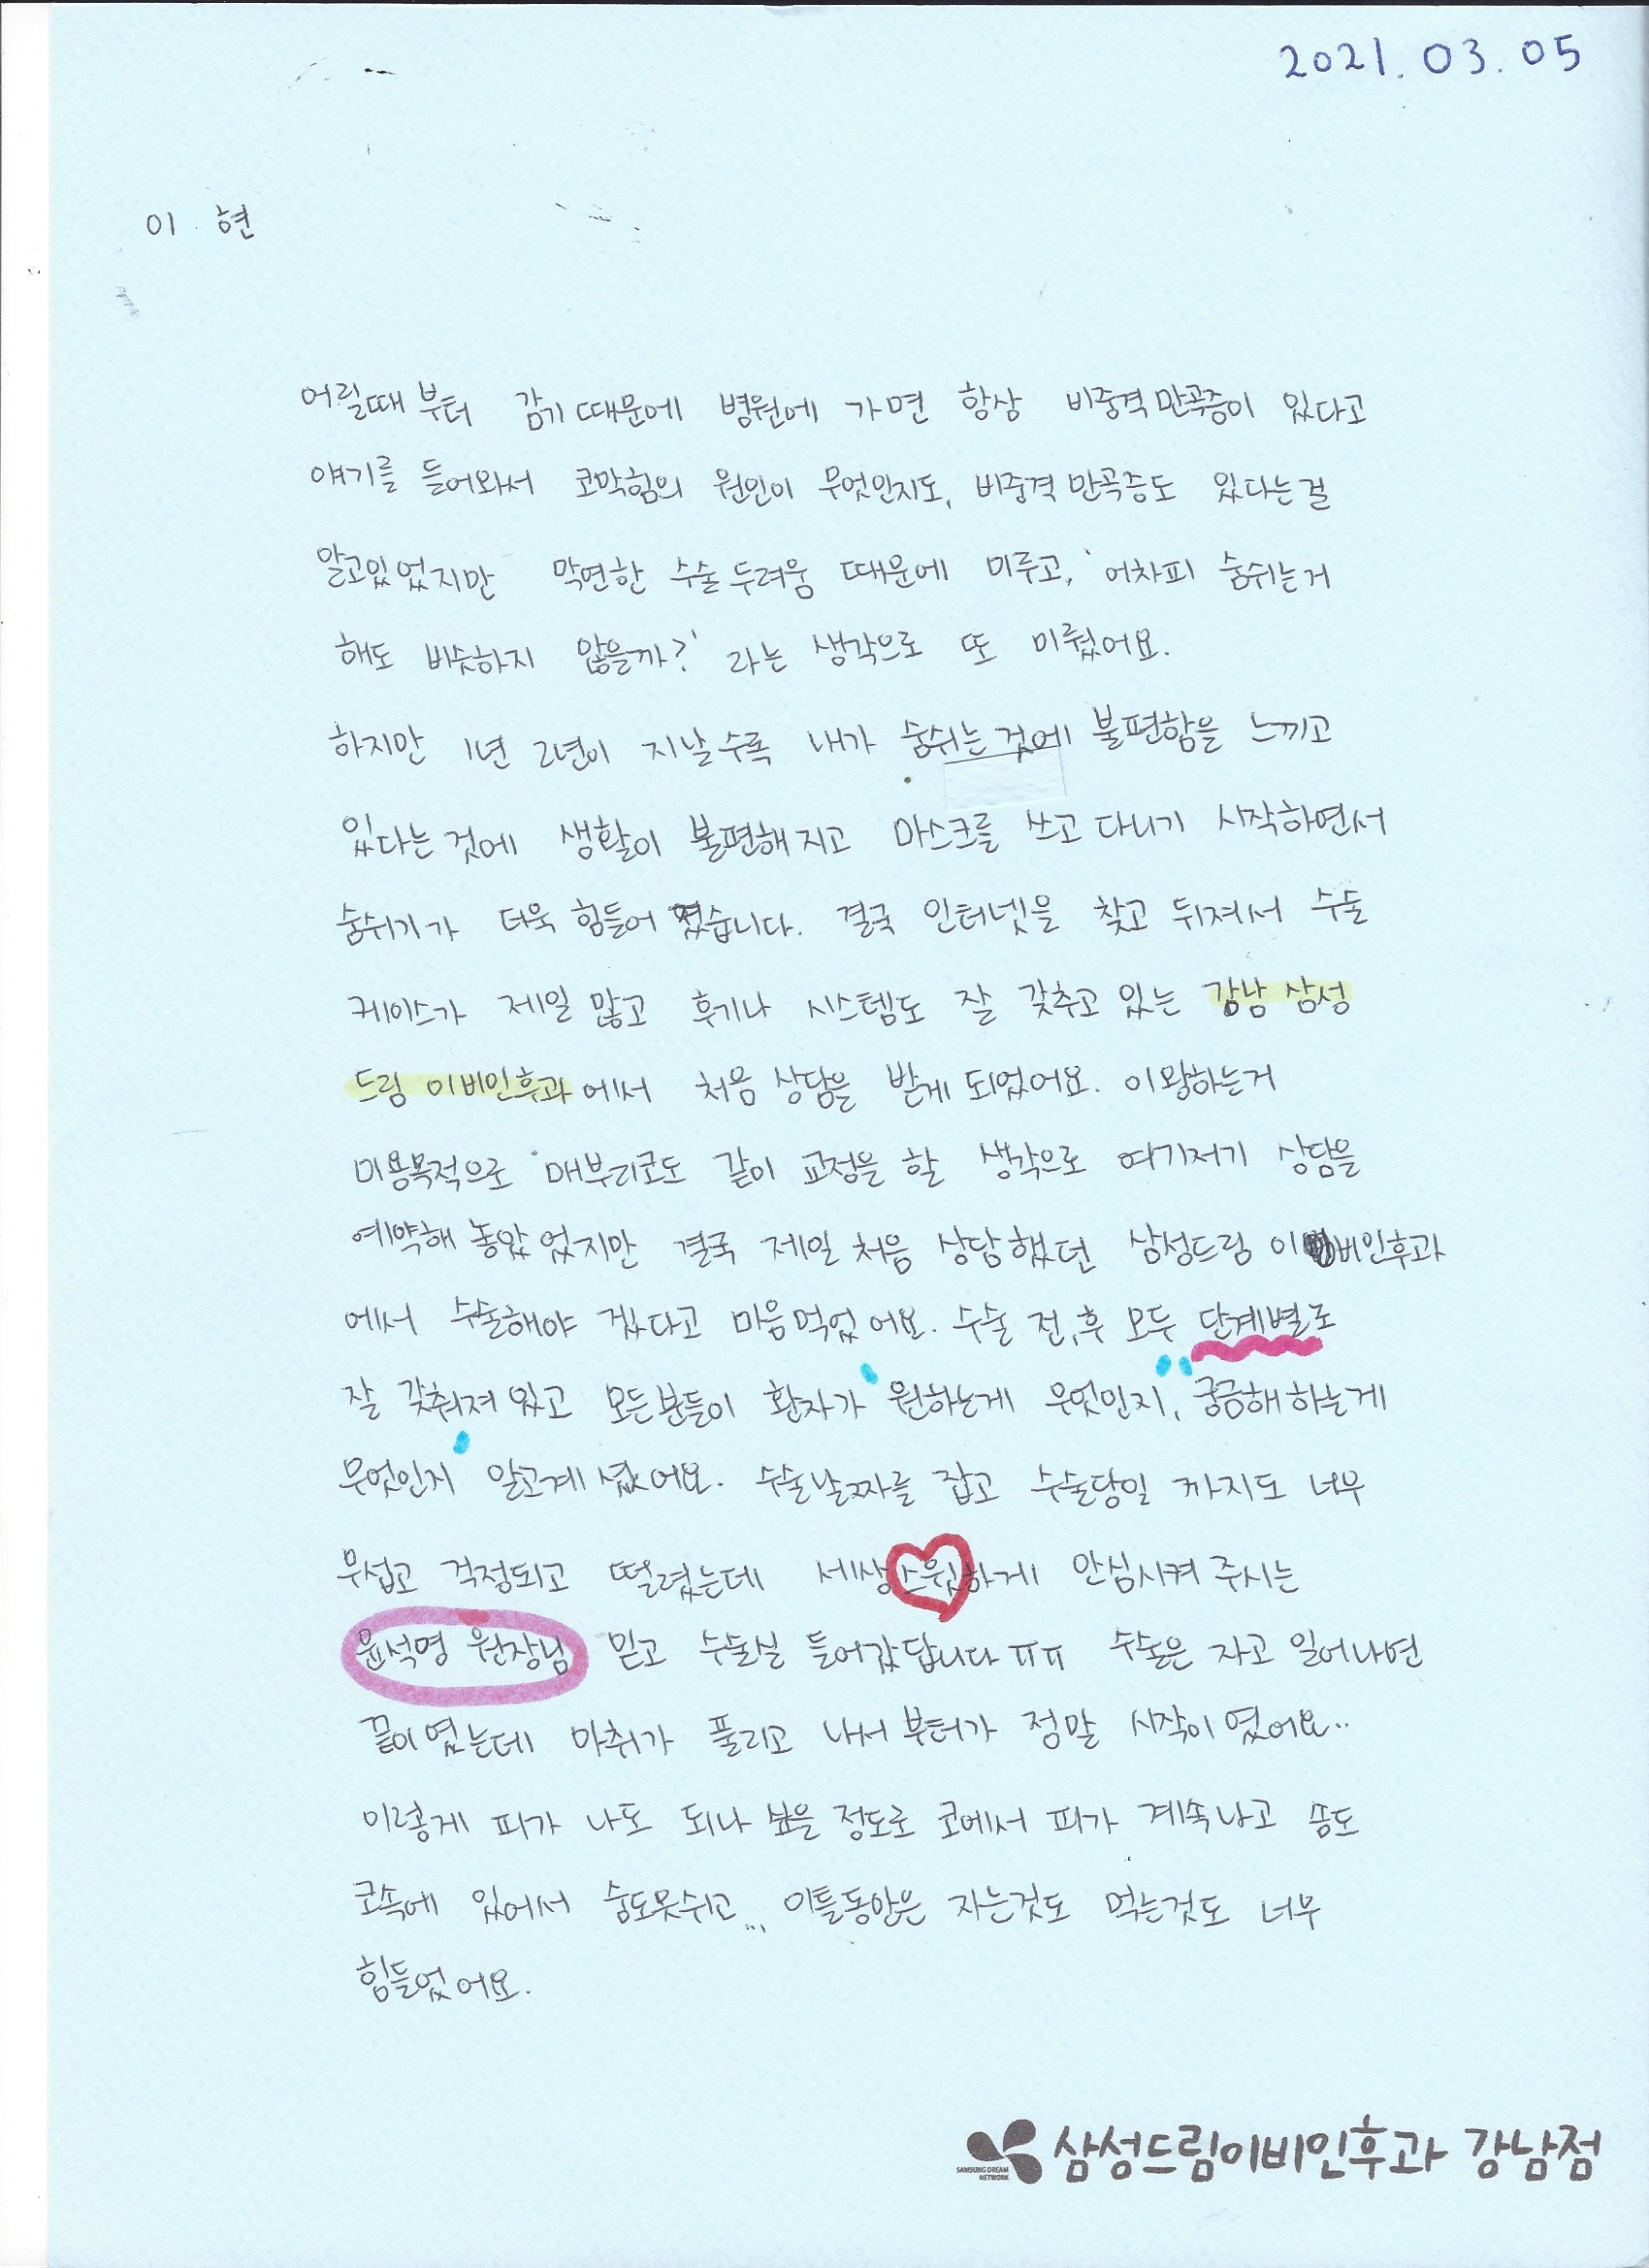 2021. 03. 05
이 현
어릴때 부터 감기 때문에 병원에 가면 항상 비중격 만곡증이 있다고
얘기를 들어와서 코막힘의 원인이 무엇인지도, 비중격 만곡증도 있다는걸
알고있었지만 막연한 수술 두려움 때문에 미루고, '어차피 숨쉬는거
해도 비슷하지 않을까?' 라는 생각으로 또 미뤘어요.
하지만 1년 2년이 지날수록 내가 숨쉬는 것에 불편함을 느끼고
있다는 것에 생활이 불편해지고 마스크를 쓰고 다니기 시작하면서
숨쉬기가 더욱 힘들어 졌습니다. 결국 인터넷을 찾고 뒤져서 수술
케이스가 제일 많고 후기나 시스템도 잘 갖추고 있는 강남 삼성
드림 이비인후과에서 처음 상담을 받게 되었어요. 이왕하는거
미용목적으로 매부리코도 같이 교정을 할 생각으로 여기저기 상담을
예약해 놓았었지만 결국 제일 처음 상담했던 삼성드림 이비인후과
에서 수술해야 겠다고 마음먹었어요. 수술 전,후 모두 단계별로
잘 갖춰져 있고 모든분들이 환자가 '원하는게 무엇인지', '궁금해하는게
무엇인지' 알고계셨어요. 수술날짜를 잡고 수술당일 까지도 너무
무섭고 걱정되고 떨렸는데 세상 스윗하게 안심시켜 주시는
윤석영 원장님 믿고 수술실 들어갔답니다 ㅠㅠ 수술은 자고 일어나면
끝이였는데 마취가 풀리고 나서부터가 정말 시작이였어요..
이렇게 피가 나도 되나 싶을 정도로 코에서 피가 계속나고 솜도
코속에 있어서 숨도못쉬고... 이틀동안은 자는것도 먹는것도 너무
힘들었어요.
SAMSUNG DREAM NETWORK 삼성드림이비인후과 강남점